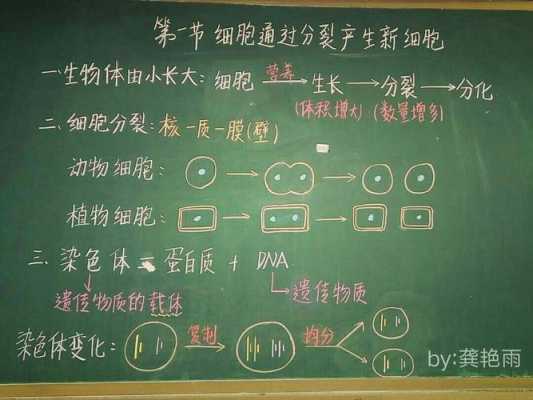 第一节 细胞通过分裂产生新细胞
一.生物体由小长大: 细胞 营养→ 生长 → 分裂 → 分化
(体积增大) (数量增多)
二、细胞分裂: 核—质—膜(壁)
动物细胞:
植物细胞:
三、染色体 = 蛋白质 + DNA
遗传物质的载体
遗传物质
染色体变化: 复制 均分
by:龚艳雨